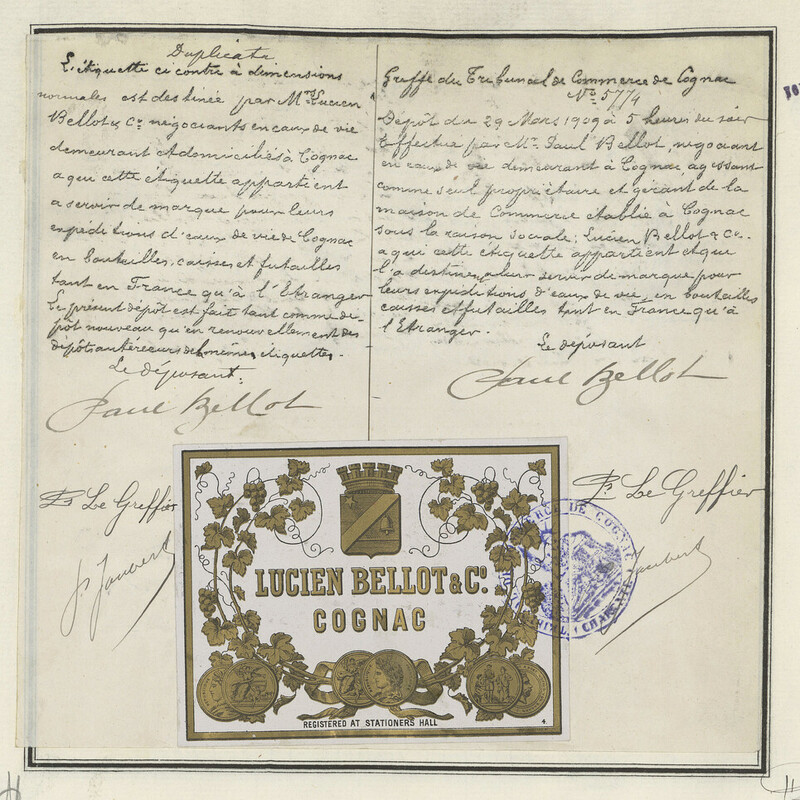 Duplicata
L'étiquette ci contre à dimensions
normales est destinée par Mrs Lucien
Bellot & Co négociants en eaux de vie
demeurant et domiciliés à Cognac
a qui cette étiquette appartient
a servir de marque pour leurs
expéditions d'eaux de vie de Cognac
en bouteilles, caisses et futailles
tant en France qu'à l'Etranger
Le présent dépôt est fait tant comme dé-
pôt nouveau qu'en renouvellement des
dépôts antérieurs de mêmes étiquettes.
Le déposant:
Paul Bellot
Le Greffier
Greffe du Tribunal de Commerce de Cognac
No 5774
Dépôt du 29 Mars 1909 à 5 heures du soir
Effectué par Mr. Paul Bellot, négociant
en eaux de vie demeurant à Cognac, agissant
comme seul propriétaire et gérant de la
maison de Commerce établie à Cognac
sous la raison sociale: Lucien Bellot & Co.
a qui cette étiquette appartient et qui
l'a destinée à leur servir de marque pour
leurs expéditions d'eaux de vie, en bouteilles
caisses et futailles tant en France qu'à
l'Etranger.
Le déposant
Paul Bellot
Le Greffier
LUCIEN BELLOT & Co.
COGNAC
REGISTERED AT STATIONERS HALL
4.
DE COGNAC